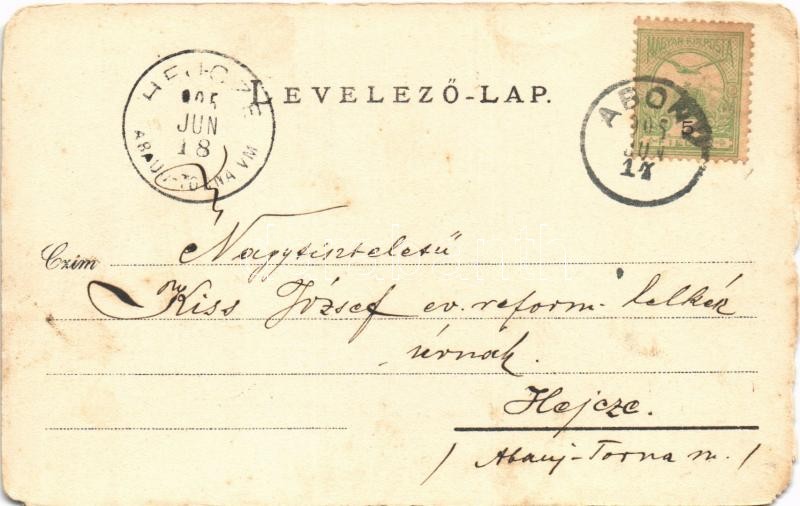 LEVELEZŐ-LAP.
HEJCZE
905
JUN
18
ABAUJ-TORNA VM
MAGYAR KIR. POSTA
5
ABONY
905
JUN
17
Czim
Nagytiszteletü
Kiss József ev. reform. lelkész
úrnak.
Hejcze.
/ Abauj-Torna m. /